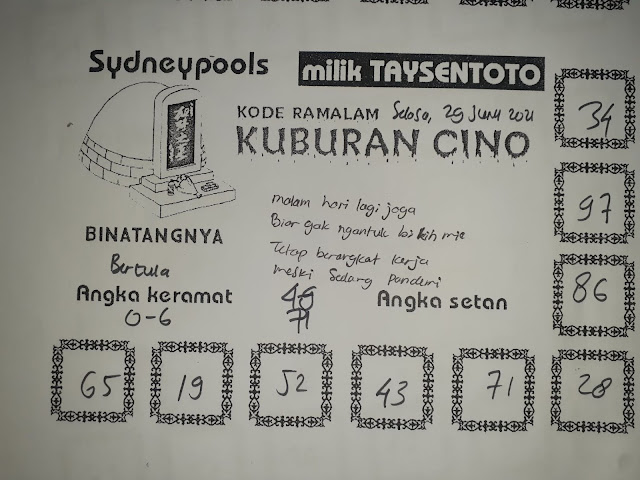 Sydneypools
milik TAYSENTOTO
KODE RAMALAM Selasa, 29 Juni 2021
KUBURAN CINO
malam hari lagi joga
Biar gak ngantuk bikin mie
Tetap berangkat kerja
meski Sedang Pandumi
BINATANGNYA
Angka keramat
0-6
71
Angka setan
34
97
86
65
19
52
43
71
28